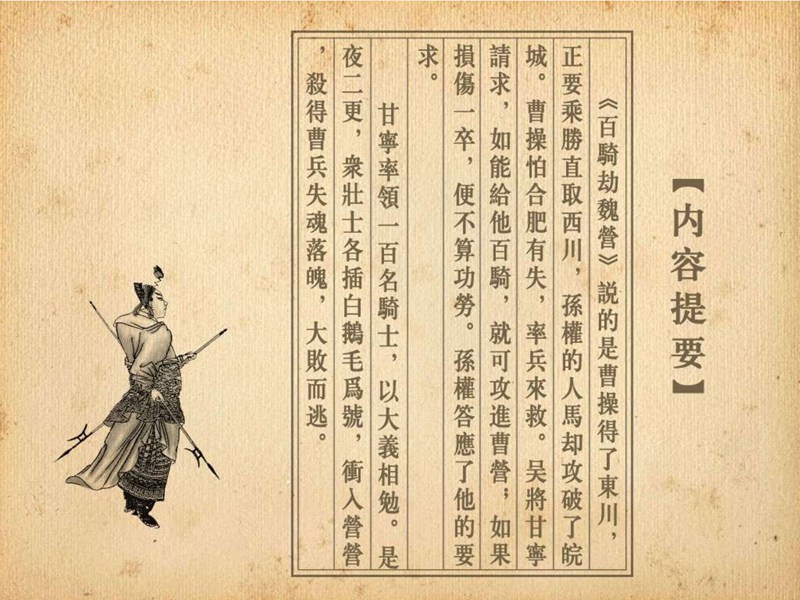 【内容提要】
《百騎劫魏營》説的是曹操得了東川，
正要乘勝直取西川，孫權的人馬却攻破了皖
城。曹操怕合肥有失，率兵來救。吴將甘寧
請求，如能給他百騎，就可攻進曹營；如果
損傷一卒，便不算功勞。孫權答應了他的要
求。
甘寧率領一百名騎士，以大義相勉。是
夜二更，衆壯士各插白鵝毛爲號，衝入營營
，殺得曹兵失魂落魄，大敗而逃。